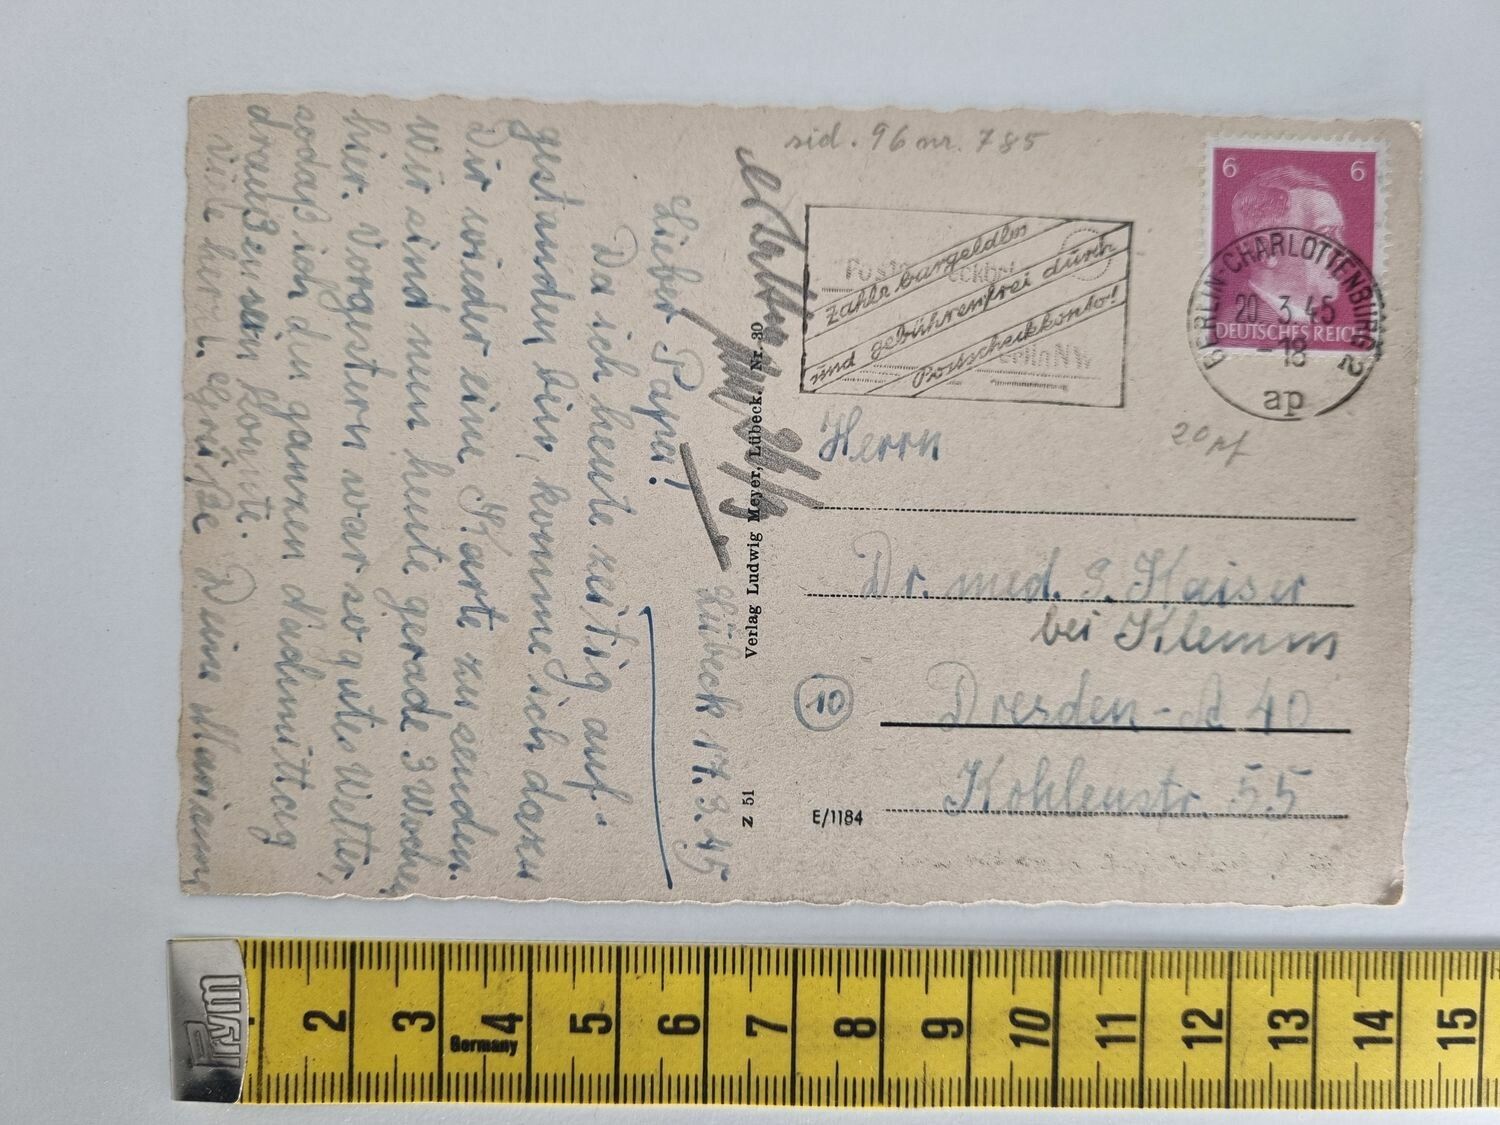 sid. 96 nr. 785
6 6
DEUTSCHES REICH
BERLIN-CHARLOTTENBURG 2
20.3.45
-18
ap
Zahle bargeldlos
und gebührenfrei durch
Postscheckkonto!
20 Pf
Herrn
Dr. med. G. Kaiser
bei Klemm
10
Dresden-A 40
Kohlenstr. 55
E/1184
Verlag Ludwig Meyer, Lübeck. Nr. 30
Z 51
Lübeck 17.3.45
Lieber Papa!
Da ich heute zeitig auf-
gestanden bin, komme ich dazu
Dir wieder eine Karte zu senden.
Wir sind nun heute gerade 3 Wochen
hier. Vorgestern war so gutes Wetter,
sodaß ich den ganzen Nachmittag
draußen sein konnte.
Viele herzl. Grüße Deine Mariann
Prym
2 3 4 5 6 7 8 9 10 11 12 13 14 15
Germany